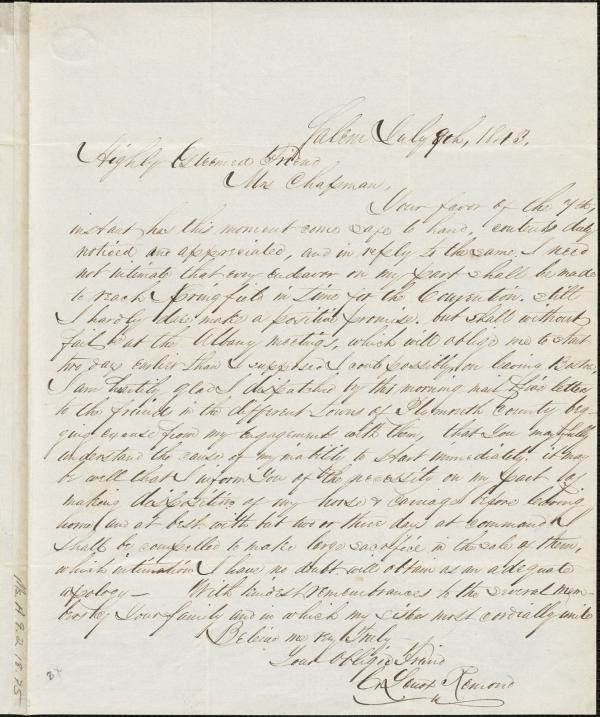 Salem July 8th, 1843.
Highly Esteemed Friend
Mrs Chapman,
Your favor of the 7th,
instant has this moment come safe to hand, contents duly
noticed and appreciated, and in reply to the same. I need
not intimate that every endeavor on my part shall be made
to reach Springfield in time for the Convention. Still
I hardly dare make a positive promise. but shall without
fail be at the Albany meetings, which will oblige me to start
two days earlier than I supposed I could possibly on leaving Boston,
I am heartily glad I dispatched by this morning mail five letters
to the friends in the different towns of Plymouth County beg-
ging excuse from my engagements with them, that you may fully
understand the cause of my inability to start immediately. it may
be well that I inform You of the necessity on my part by
making disposition of my horse & carriage before leaving
home, and at best with but two or three days at command I
shall be compelled to make large sacrifice in the sale of them,
which intimation I have no doubt will obtain as an adequate
apology— With kindest remembrances to the several mem-
bers of Your family and in which my sister most cordially unite
Believe me very truly
Your obliged Friend
C. Lenox Remond
Ms. A. 9.2.18.75